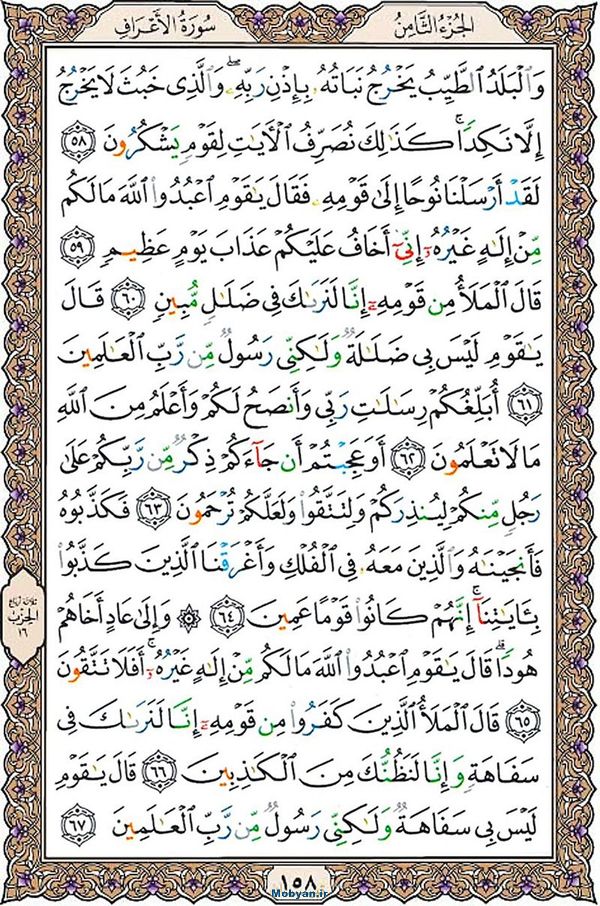 الجزء الثامن
سورة الأعراف
وَالْبَلَدُ الطَّيِّبُ يَخْرُجُ نَبَاتُهُ بِإِذْنِ رَبِّهِ وَالَّذِي خَبُثَ لَا يَخْرُجُ
إِلَّا نَكِدًا كَذَٰلِكَ نُصَرِّفُ الْآيَاتِ لِقَوْمٍ يَشْكُرُونَ ٥٨
لَقَدْ أَرْسَلْنَا نُوحًا إِلَىٰ قَوْمِهِ فَقَالَ يَا قَوْمِ اعْبُدُوا اللَّهَ مَا لَكُم
مِّنْ إِلَٰهٍ غَيْرُهُ إِنِّي أَخَافُ عَلَيْكُمْ عَذَابَ يَوْمٍ عَظِيمٍ ٥٩
قَالَ الْمَلَأُ مِن قَوْمِهِ إِنَّا لَنَرَاكَ فِي ضَلَالٍ مُّبِينٍ ٦٠ قَالَ
يَا قَوْمِ لَيْسَ بِي ضَلَالَةٌ وَلَٰكِنِّي رَسُولٌ مِّن رَّبِّ الْعَالَمِينَ
٦١ أُبَلِّغُكُمْ رِسَالَاتِ رَبِّي وَأَنصَحُ لَكُمْ وَأَعْلَمُ مِنَ اللَّهِ
مَا لَا تَعْلَمُونَ ٦٢ أَوَعَجِبْتُمْ أَن جَاءَكُمْ ذِكْرٌ مِّن رَّبِّكُمْ عَلَىٰ
رَجُلٍ مِّنكُمْ لِيُنذِرَكُمْ وَلِتَتَّقُوا وَلَعَلَّكُمْ تُرْحَمُونَ ٦٣ فَكَذَّبُوهُ
فَأَنجَيْنَاهُ وَالَّذِينَ مَعَهُ فِي الْفُلْكِ وَأَغْرَقْنَا الَّذِينَ كَذَّبُوا
بِآيَاتِنَا إِنَّهُمْ كَانُوا قَوْمًا عَمِينَ ٦٤ ۞ وَإِلَىٰ عَادٍ أَخَاهُمْ
هُودًا قَالَ يَا قَوْمِ اعْبُدُوا اللَّهَ مَا لَكُم مِّنْ إِلَٰهٍ غَيْرُهُ أَفَلَا تَتَّقُونَ
٦٥ قَالَ الْمَلَأُ الَّذِينَ كَفَرُوا مِن قَوْمِهِ إِنَّا لَنَرَاكَ فِي
سَفَاهَةٍ وَإِنَّا لَنَظُنُّكَ مِنَ الْكَاذِبِينَ ٦٦ قَالَ يَا قَوْمِ
لَيْسَ بِي سَفَاهَةٌ وَلَٰكِنِّي رَسُولٌ مِّن رَّبِّ الْعَالَمِينَ ٦٧
ثلاثة أرباع
الحزب
١٦
١٥٨
Mobyan.ir